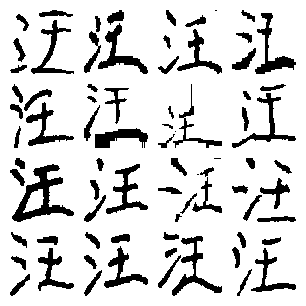 汪汪汪汪
汪汪汪汪
汪汪汪汪
汪汪汪汪